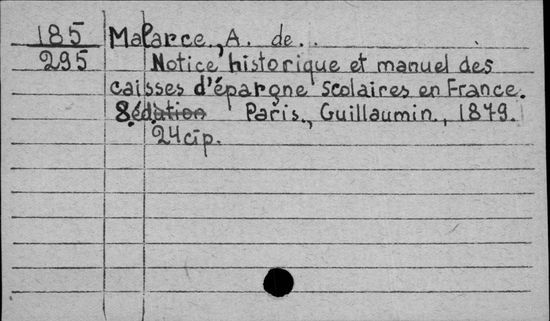 185 Malarce, A. de.
295 Notice historique et manuel des
caisses d'épargne scolaires en France.
8 éd. Paris, Guillaumin, 1879.
24cip.